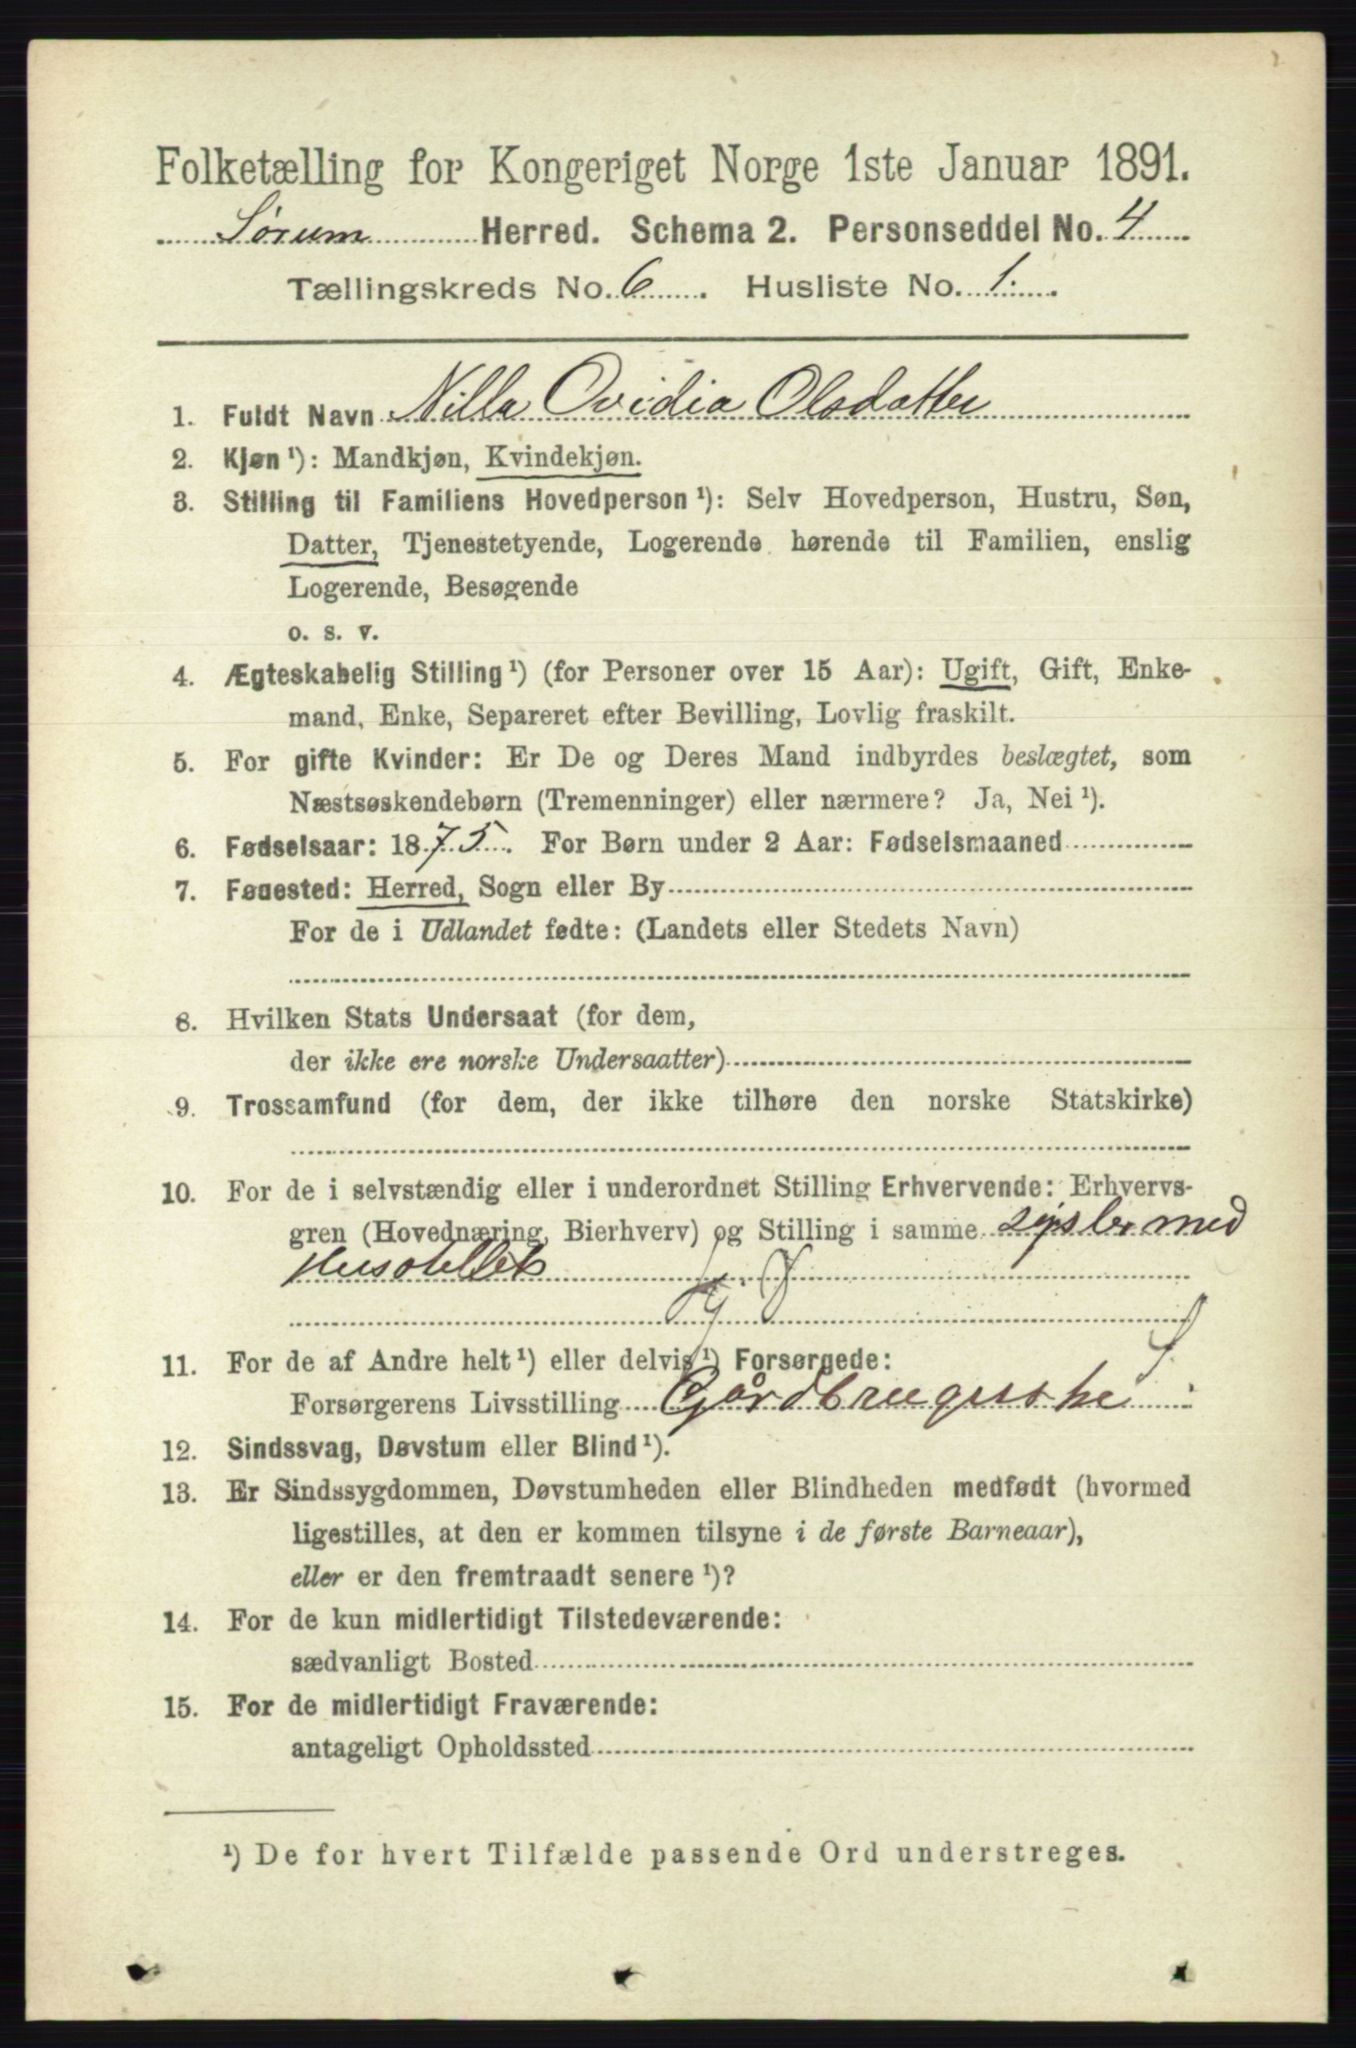 Folketælling for Kongeriget Norge 1ste Januar 1891.
Sørum Herred. Schema 2. Personseddel No. 4
Tællingskreds No. 6. Husliste No. 1.
1. Fuldt Navn Nilla Ovidia Olsdatter
2. Kjøn ¹): Mandkjøn, Kvindekjøn.
3. Stilling til Familiens Hovedperson ¹): Selv Hovedperson, Hustru, Søn,
Datter, Tjenestetyende, Logerende hørende til Familien, enslig
Logerende, Besøgende
o. s. v.
4. Ægteskabelig Stilling ¹) (for Personer over 15 Aar): Ugift, Gift, Enke-
mand, Enke, Separeret efter Bevilling, Lovlig fraskilt.
5. For gifte Kvinder: Er De og Deres Mand indbyrdes beslægtet, som
Næstsøskendebørn (Tremenninger) eller nærmere? Ja, Nei ¹).
6. Fødselsaar: 1875. For Børn under 2 Aar: Fødselsmaaned
7. Fødested: Herred, Sogn eller By
For de i Udlandet fødte: (Landets eller Stedets Navn)
8. Hvilken Stats Undersaat (for dem,
der ikke ere norske Undersaatter)
9. Trossamfund (for dem, der ikke tilhøre den norske Statskirke)
10. For de i selvstændig eller i underordnet Stilling Erhvervende: Erhvervs-
gren (Hovednæring, Bierhverv) og Stilling i samme sysler med
Husstellet
11. For de af Andre helt ¹) eller delvis ¹) Forsørgede:
Forsørgerens Livsstilling Gårdbrugerske
12. Sindssvag, Døvstum eller Blind ¹).
13. Er Sindssygdommen, Døvstumheden eller Blindheden medfødt (hvormed
ligestilles, at den er kommen tilsyne i de første Barneaar),
eller er den fremtraadt senere ¹)?
14. For de kun midlertidigt Tilstedeværende:
sædvanligt Bosted
15. For de midlertidigt Fraværende:
antageligt Opholdssted
¹) De for hvert Tilfælde passende Ord understreges.